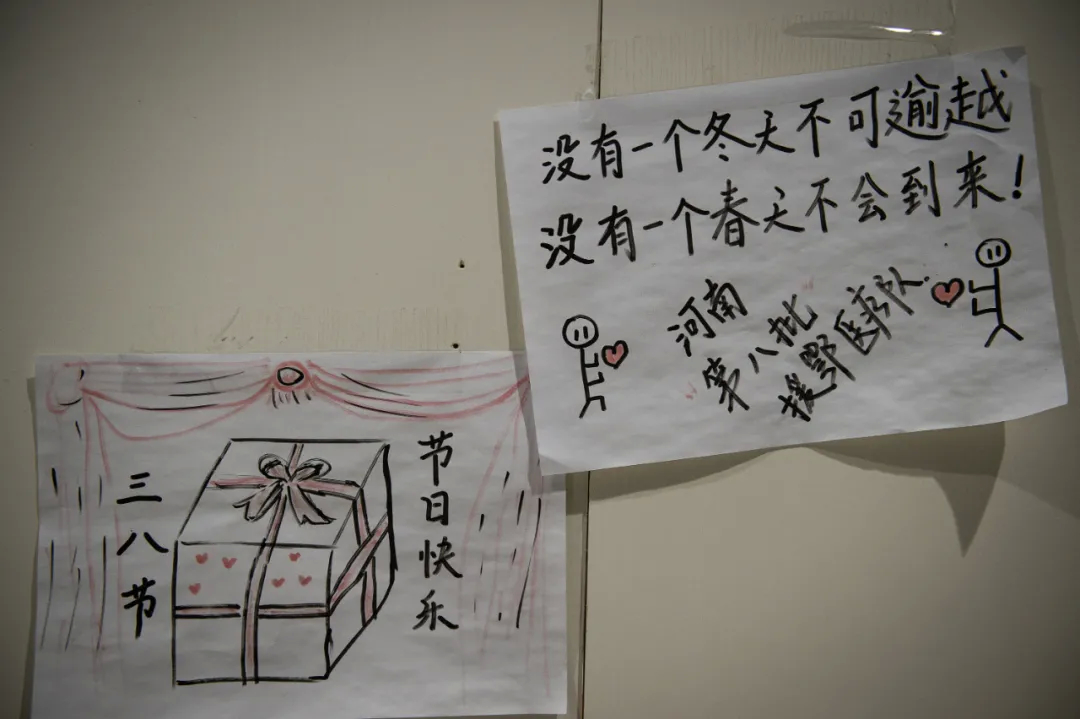 没有一个冬天不可逾越
没有一个春天不会到来!
河南
第八批
援鄂医疗队.
三八节
节日快乐